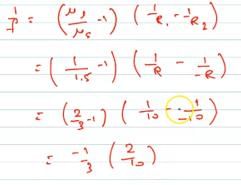 1/f = (μg/μs - 1) (1/R₁ - 1/R₂)
= (1/1.5 - 1) (1/R - 1/-R)
= (2/3 - 1) (1/10 - 1/-10)
= -1/3 (2/10)